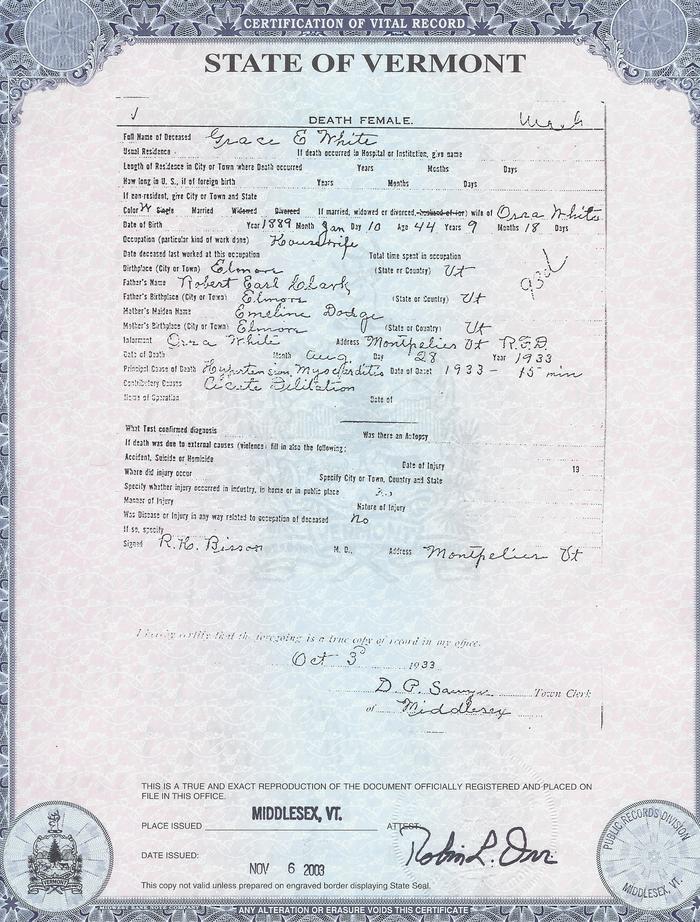 CERTIFICATION OF VITAL RECORD
STATE OF VERMONT
DEATH FEMALE.
Full Name of Deceased Grace E White
Usual Residence If death occurred in Hospital or Institution, give name
Length of Residence in City or Town where Death occurred Years Months Days
How long in U. S., if of foreign birth Years Months Days
If non-resident, give City or Town and State
Color W Single Married Widowed Divorced If married, widowed or divorced, husband of (or) wife of Orra White
Date of Birth Year 1889 Month Jan Day 10 Age 44 Years 9 Months 18 Days
Occupation (particular kind of work done) Housewife
Date deceased last worked at this occupation Total time spent in occupation
Birthplace (City or Town) Elmore (State or Country) Vt
93d
Father's Name Robert Earl Clark
Father's Birthplace (City or Town) Elmore (State or Country) Vt
Mother's Maiden Name Emeline Dodge
Mother's Birthplace (City or Town) Elmore (State or Country) Vt
Informant Orra White Address Montpelier Vt R.F.D.
Date of Death Month Aug. Day 28 Year 1933
Principal Cause of Death Hypertension, Myocarditis Date of Onset 1933 - 15 min
Contributory Causes Acute Dilitation
Name of Operation Date of
What Test confirmed diagnosis Was there an Autopsy
If death was due to external causes (violence) fill in also the following:
Accident, Suicide or Homicide Date of Injury 19
Where did injury occur Specify City or Town, Country and State
Specify whether injury occurred in industry, in home or in public place
Manner of Injury Nature of Injury
Was Disease or Injury in any way related to occupation of deceased No
If so, specify
Signed R. H. Bisson M. D., Address Montpelier Vt
I hereby certify that the foregoing is a true copy of record in my office.
Oct 3d 1933
D. P. Sawyer Town Clerk
of Middlesex
THIS IS A TRUE AND EXACT REPRODUCTION OF THE DOCUMENT OFFICIALLY REGISTERED AND PLACED ON
FILE IN THIS OFFICE.
PLACE ISSUED MIDDLESEX, VT. ATTEST Robin L. Orr
DATE ISSUED: NOV 6 2003
This copy not valid unless prepared on engraved border displaying State Seal.
VERMONT
PUBLIC RECORDS DIVISION
MIDDLESEX, VT.
ANY ALTERATION OR ERASURE VOIDS THIS CERTIFICATE